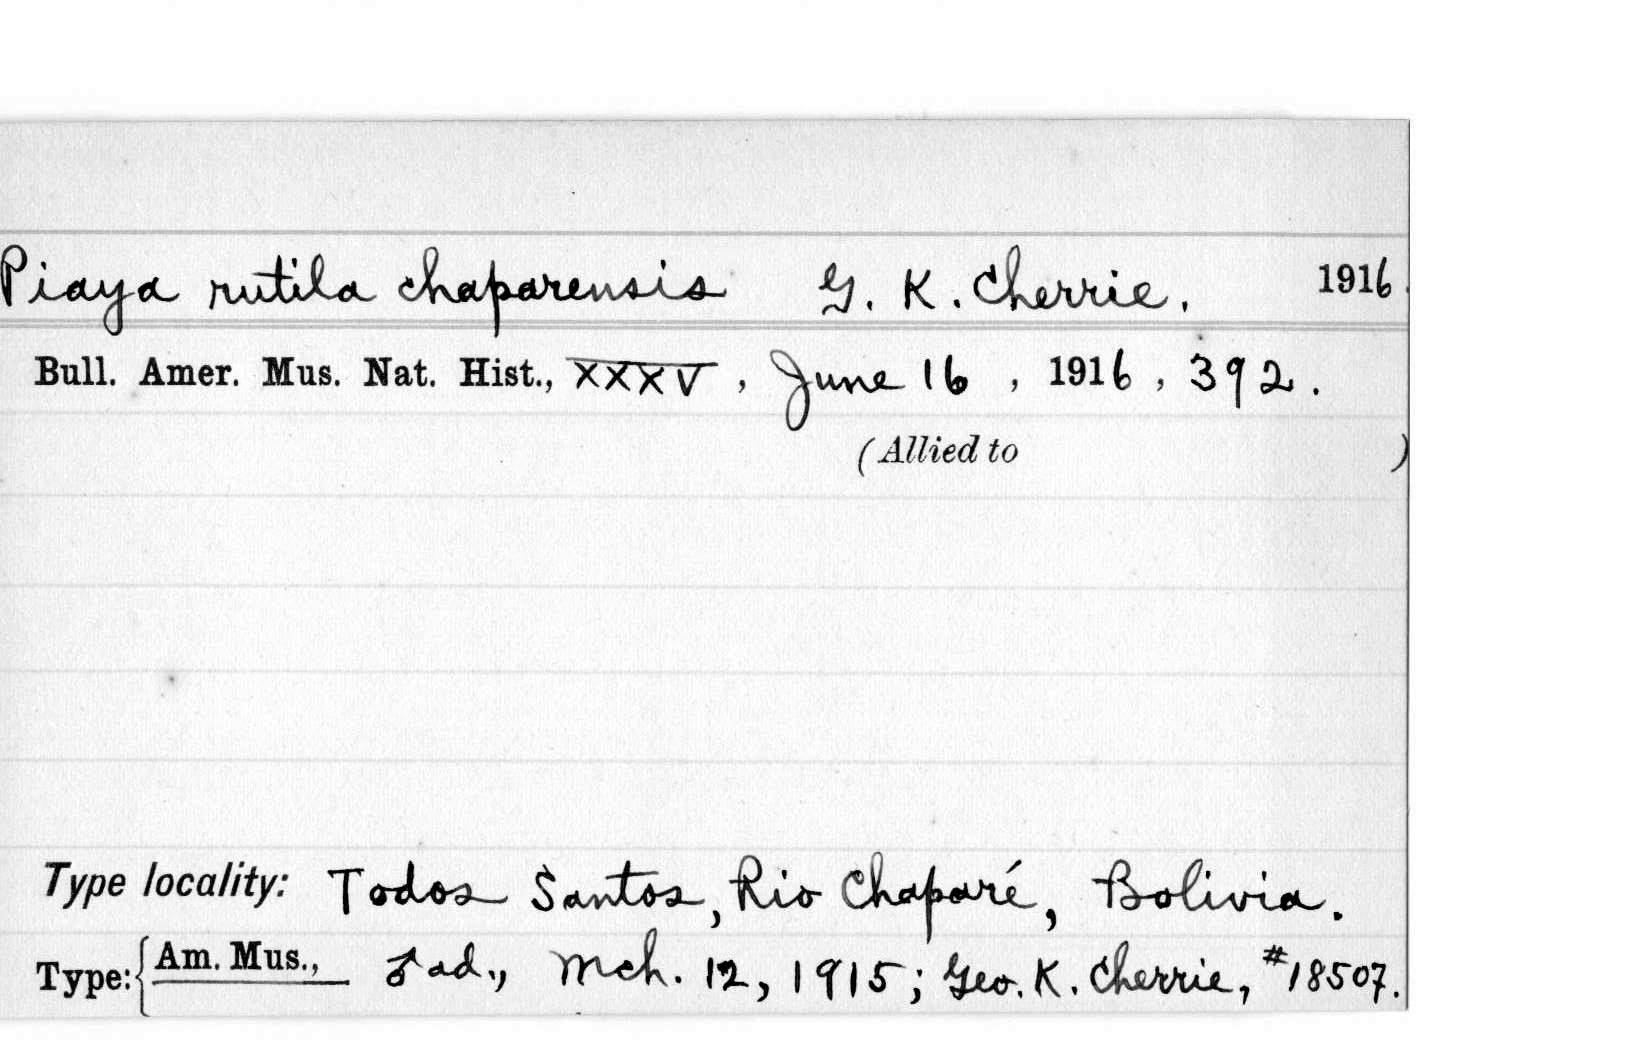 Piaya rutila chaparensis G. K. Cherrie. 1916.
Bull. Amer. Mus. Nat. Hist., XXXV, June 16, 1916, 392.
(Allied to )
Type locality: Todos Santos, Rio Chaparé, Bolivia.
Type: { Am. Mus., ♂ ad., Mch. 12, 1915; Geo. K. Cherrie, #18507.